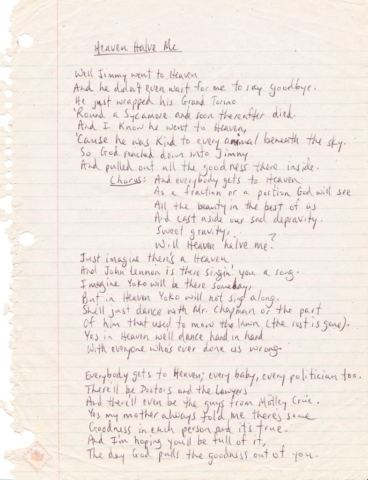 Heaven Halve Me
Well Jimmy went to Heaven
And he didn't even wait for me to say goodbye.
He just wrapped his Grand Torino
'Round a Sycamore and soon thereafter died.
And I know he went to Heaven,
'Cause he was kind to every animal beneath the sky.
So God reached down into Jimmy
And pulled out all the goodness there inside.
Chorus: And everybody gets to Heaven
As a fraction or a portion God will see
All the beauty in the best of us
And cast aside our sad depravity.
Sweet gravity,
Will Heaven halve me?
Just imagine there's a Heaven
And John Lennon is there singin' you a song.
Imagine Yoko will be there someday,
But in Heaven Yoko will not sing along.
She'll just dance with Mr. Chapman or the part
Of him that used to mow the lawn (the rest is gone).
Yes in Heaven we'll dance hand in hand
With everyone who's ever done us wrong.
Everybody gets to Heaven; every baby, every politician too.
There'll be Doctors and the Lawyers
And there'll even be the guys from Mötley Crüe.
Yes my mother always told me there's some
Goodness in each person and it's true.
And I'm hoping you'll be full of it,
The day God pulls the goodness out of you.